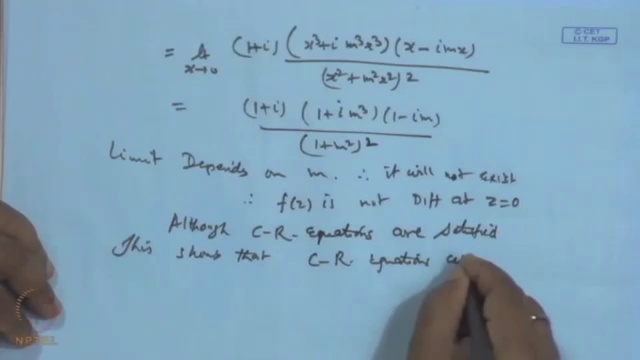 © CET
I.I.T. KGP
= lt x→0 (1+i) (x³+i m³x³) (x-imx) / (x²+m²x²)²
= (1+i) (1+i m³) (1-im) / (1+m²)²
Limit Depends on m. ∴ it will not exist
∴ f(z) is not Diff at z=0
Although C-R-Equations are satisfied
This shows that C-R. Equations
NPTEL